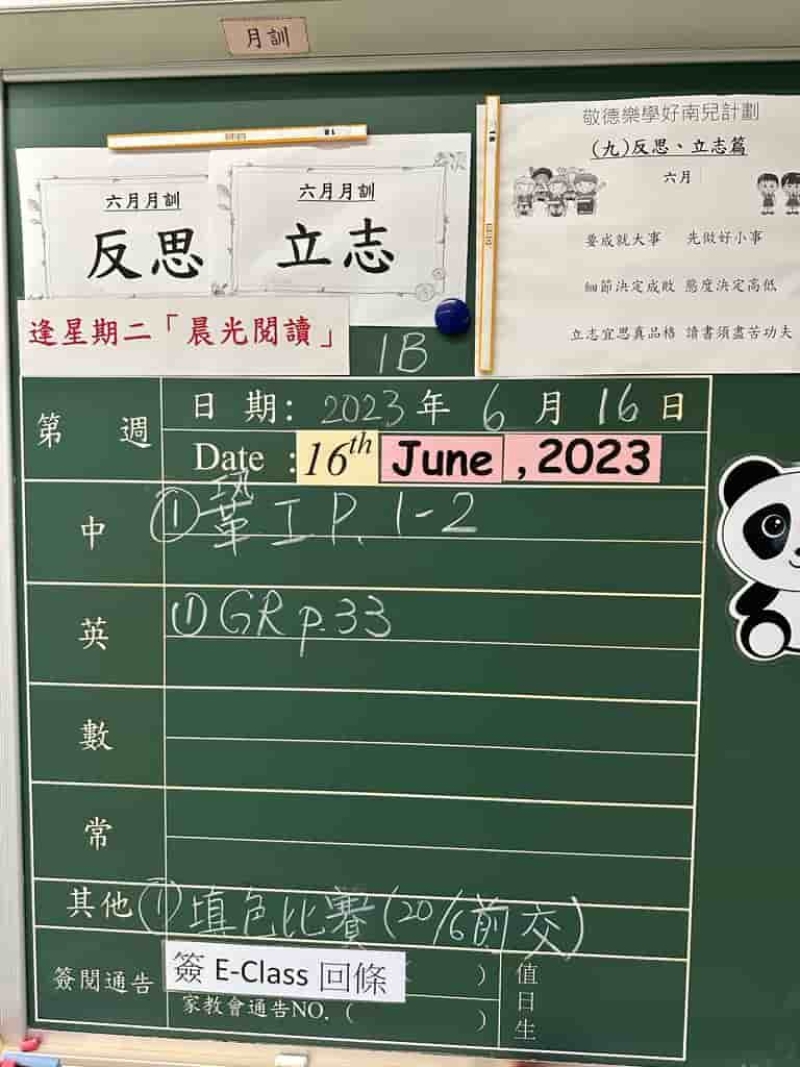 月訓
六月月訓
反思
六月月訓
立志
敬德樂學好南兒計劃
(九)反思、立志篇
六月
要成就大事 先做好小事
細節決定成敗 態度決定高低
立志宜思真品格 讀書須盡苦功夫
逢星期二「晨光閱讀」
1B
第 週
日 期: 2023 年 6 月 16 日
Date : 16th June , 2023
中
① 鞏工 P. 1-2
英
① GR p.33
數
常
其他 ① 填色比賽 (20/6前交)
簽閱通告
簽 E-Class 回條 )
家教會通告NO. ( )
值日生